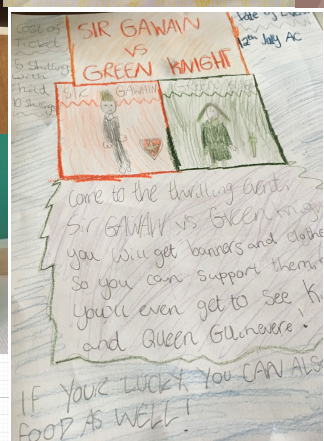 Cost of
Ticket
5 Shillings
with
10 Shillings
SIR GAWAIN
VS
GREEN KNIGHT
Date of
12th July AC
SIR GAWAIN
Come to the thrilling event,
Sir GAWAIN VS Green
you will get banners and
So you can support them
You'll even get to see
and Queen Guinevere!
IF YOUR LUCKY, YOU CAN
FOOD AS WELL!